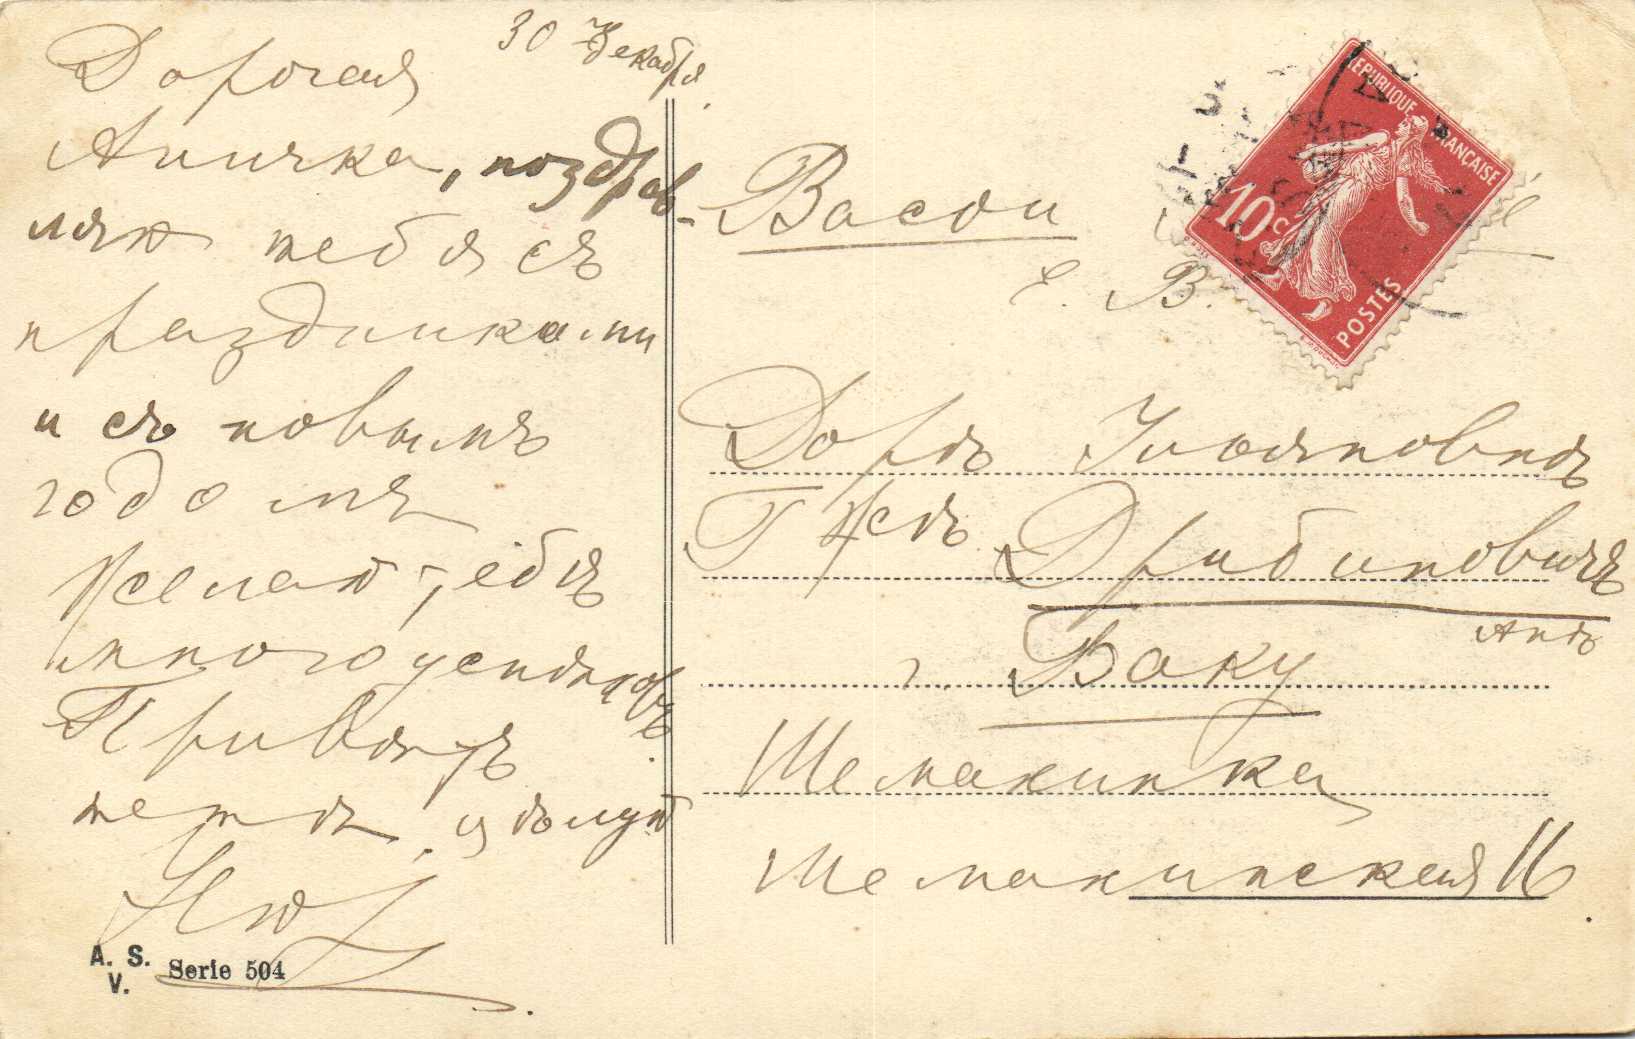 30 Декабря
Дорогая
Аничка, поздрав-
ляю тебя съ
праздниками
и съ новымъ
годомъ
Желаю тебѣ
много успѣховъ.
Привѣтъ
тетѣ. цѣлую
A. S.
V.
Serie 504
REPUBLIQUE FRANÇAISE
10 c
POSTES
Е. В.
Дорѣ Ульяновнѣ
Г жѣ Дрибиновичъ
Анѣ
г. Баку
Шемахинка
Шемахинская 16